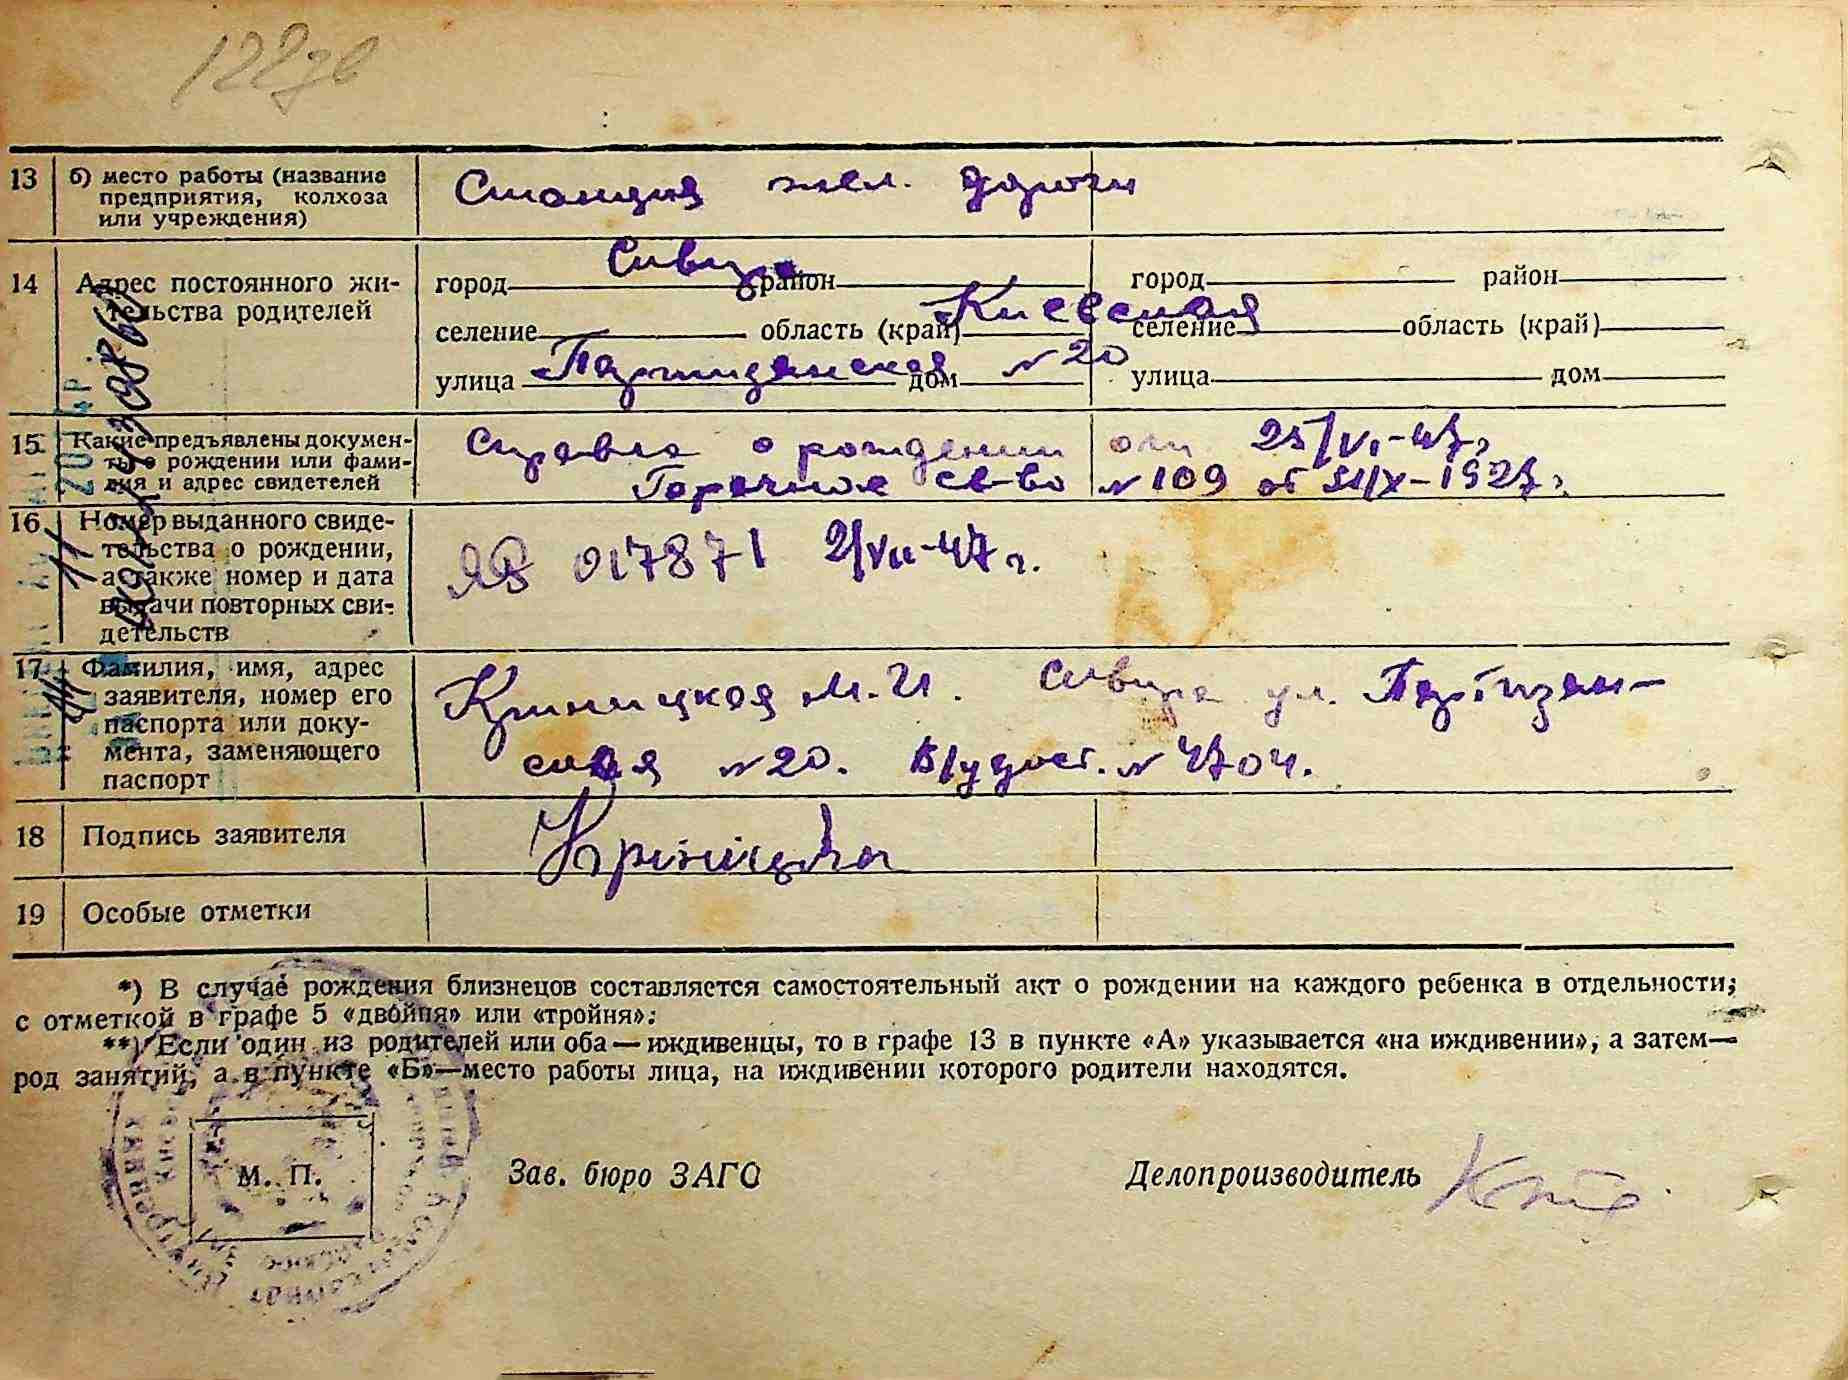 122зв
13 б) место работы (название предприятия, колхоза или учреждения) Станция жел. дороги
14 Адрес постоянного жительства родителей
город Сквира район город район
селение область (край) Киевская селение область (край)
улица Партизанская дом №20 улица дом
15. Какие предъявлены документы о рождении или фамилия и адрес свидетелей
Справка о рождении от 25/VI-47г
Брачное св-во №109 от /IX-1927г.
16 Номер выданного свидетельства о рождении, а также номер и дата выдачи повторных свидетельств
ЯВ 017871 2/VII-47г.
17 Фамилия, имя, адрес заявителя, номер его паспорта или документа, заменяющего паспорт
Криницкая М.И. Сквира ул. Партизан-
ская №20. В/удост. №4704.
18 Подпись заявителя
19 Особые отметки
*) В случае рождения близнецов составляется самостоятельный акт о рождении на каждого ребенка в отдельности;
с отметкой в графе 5 «двойня» или «тройня».
**) Если один из родителей или оба—иждивенцы, то в графе 13 в пункте «А» указывается «на иждивении», а затем—
род занятий, а в пункте «Б»—место работы лица, на иждивении которого родители находятся.
М. П. Зав. бюро ЗАГС Делопроизводитель